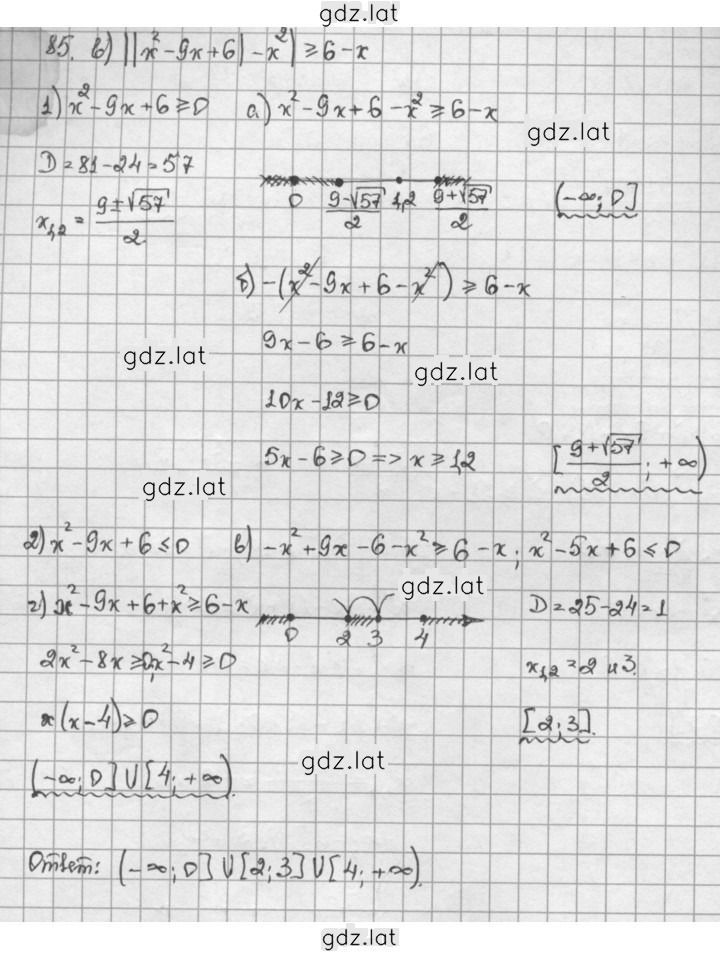 gdz.lat
85. в) ||x²-9x+6|-x²|≥6-x
1) x²-9x+6≥0 а) x²-9x+6-x²≥6-x
gdz.lat
D=81-24=57
0 (9-√57)/2 1,2 (9+√57)/2
(-∞; 0]
x₁,₂ = (9±√57)/2
б) -(x²-9x+6-x²)≥6-x
9x-6≥6-x
gdz.lat
gdz.lat
10x-12≥0
5x-6≥0 => x≥1,2 [(9+√57)/2; +∞)
gdz.lat
2) x²-9x+6≤0 в) -x²+9x-6-x²≥6-x; x²-5x+6≤0
gdz.lat
г) x²-9x+6+x²≥6-x D=25-24=1
0 2 3 4
2x²-8x≥0; x²-4≥0 x₁,₂=2 и 3.
x(x-4)≥0 [2; 3].
gdz.lat
(-∞; 0]∪[4; +∞).
Ответ: (-∞; 0]∪[2; 3]∪[4; +∞).
gdz.lat